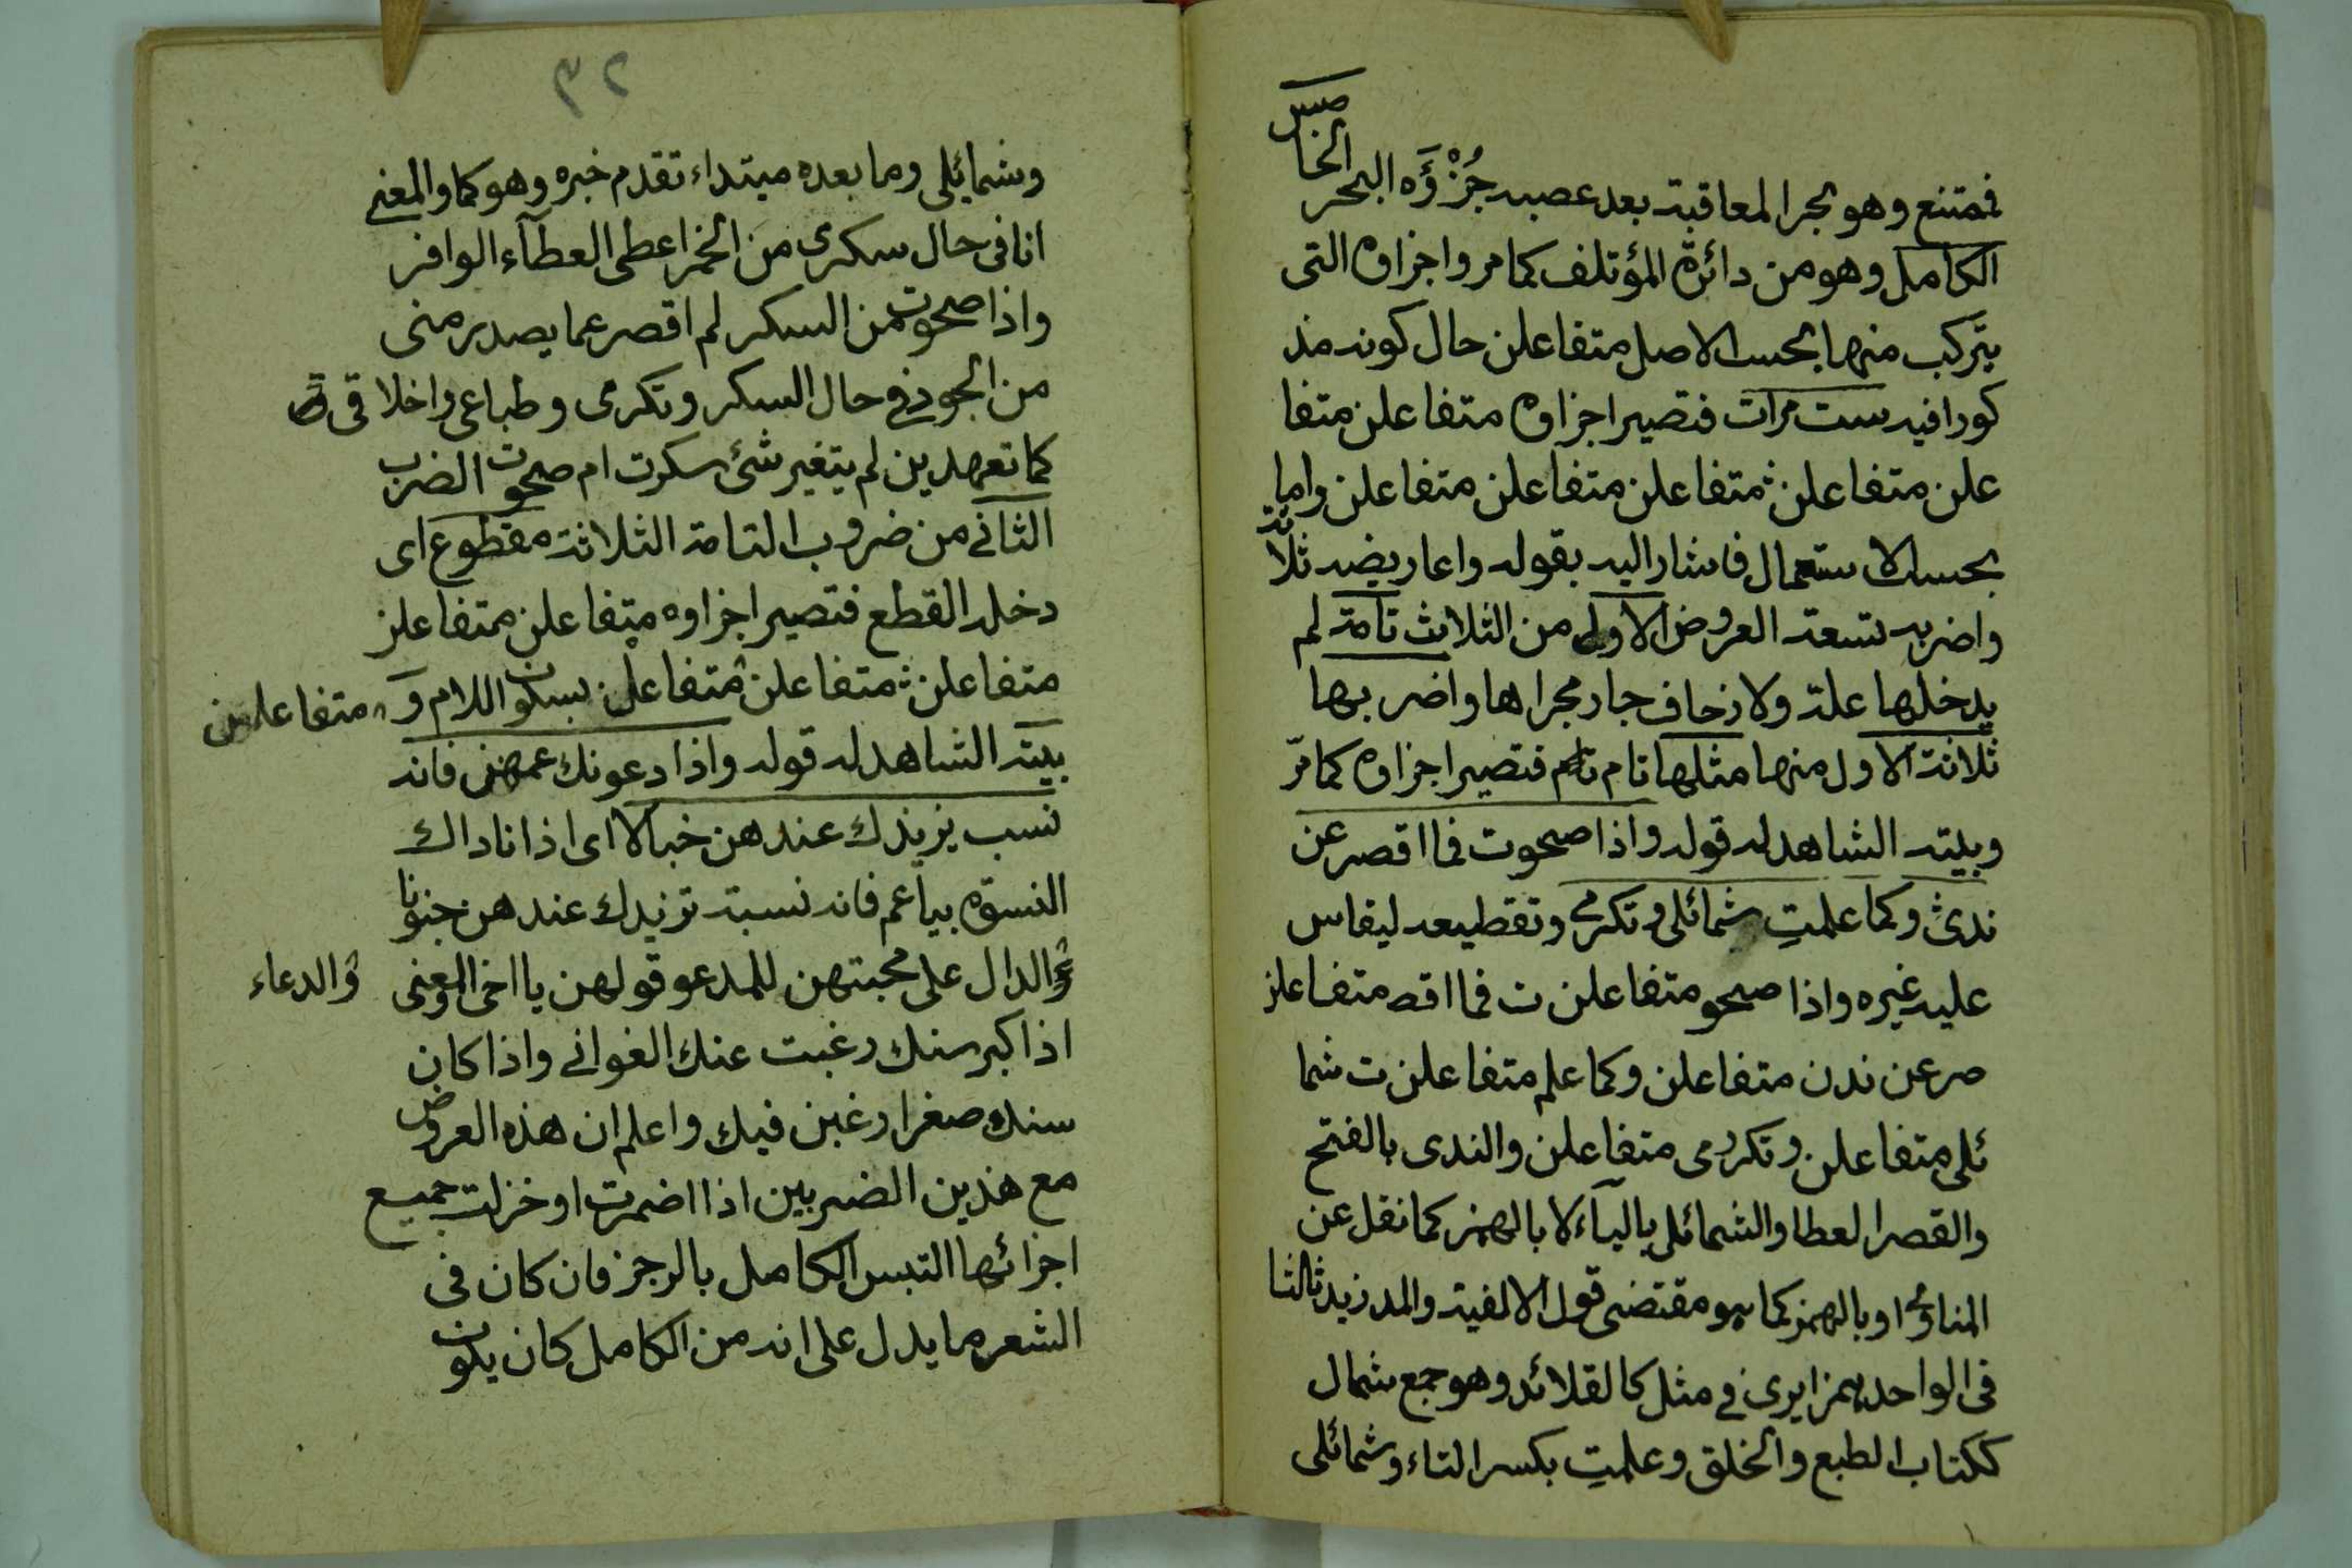 فمتنع وهو بجرا لمعاقبة بعد عصبه جُزْؤَه البحر الخامس
الكامل وهو من دائرة المؤتلف كما مر واجزاوه التى
يتركب منها بحسب الاصل متفاعلن حال كونه مذ
كورا فيه ست مرات فتصير اجزاوه متفاعلن متفا
علن متفاعلن متفاعلن متفاعلن متفاعلن واما
بحسب الاستعمال فاشار اليه بقوله واعاريضه ثلاثة
واضربه تسعة العروض الاولى من الثلاث تامة لم
يدخلها علة ولا زحاف جار مجراها واضربها
ثلاثة الاول منها مثلها تام تام فتصير اجزاوه كما مرّ
وبيته الشاهد له قوله واذا صحوت فما اقصر عن
ندى وكما علمتِ شمائلى وتكرمى وتقطيعه ليقاس
عليه غيره واذا صحو متفاعلن ت فما اقص متفاعلن
صر عن ندن متفاعلن وكما علم متفاعلن ت شما
ئلى متفاعلن وتكررمى متفاعلن والندى بالفتح
والقصر العطا والشمائل بالياء لا بالهمز كما نقل عن
المناوى او بالهمز كما هو مقتضى قول الالفية والمد زيد ثالثا
فى الواحد همزا يرى فى مثل كالقلائد وهو جمع شمال
ككتاب الطبع والخلق وعلمتِ بكسر التاء وشمائلى
٣٢
وشمائلى وما بعده مبتداء تقدم خبره وهو كما والمعنى
انا فى حال سكرى من الخمر اعطى العطآء الوافر
واذا صحوت من السكر لم اقصر عما يصدر منى
من الجود فى حال السكر وتكرمى وطباعى واخلاقى
كما تعهدين لم يتغير شئ سكرت ام صحوت الضرب
الثانى من ضروب التامة الثلاثة مقطوع اى
دخله القطع فتصير اجزاوه متفاعلن متفاعلن
متفاعلن متفاعلن متفاعلن بسكون اللام و
متفاعلن
بيته الشاهد له قوله واذا دعونك عمهن فانه
نسب يزيدك عندهن خبالا اى اذا ناداك
النسوة بياعم فانه نسبة تزيدك عندهن جنونا
والدال على محبتهن للمدعو قولهن يا اخى والمعنى
والدعاء
اذا كبر سنك رغبت عنك الغوانى واذا كان
سنك صغرا رغبن فيك واعلم ان هذه العروض
مع هذين الضربين اذا اضمرت او خزلت جميع
اجزائها التبس الكامل بالرجز فان كان فى
الشعر ما يدل على انه من الكامل كان يكون